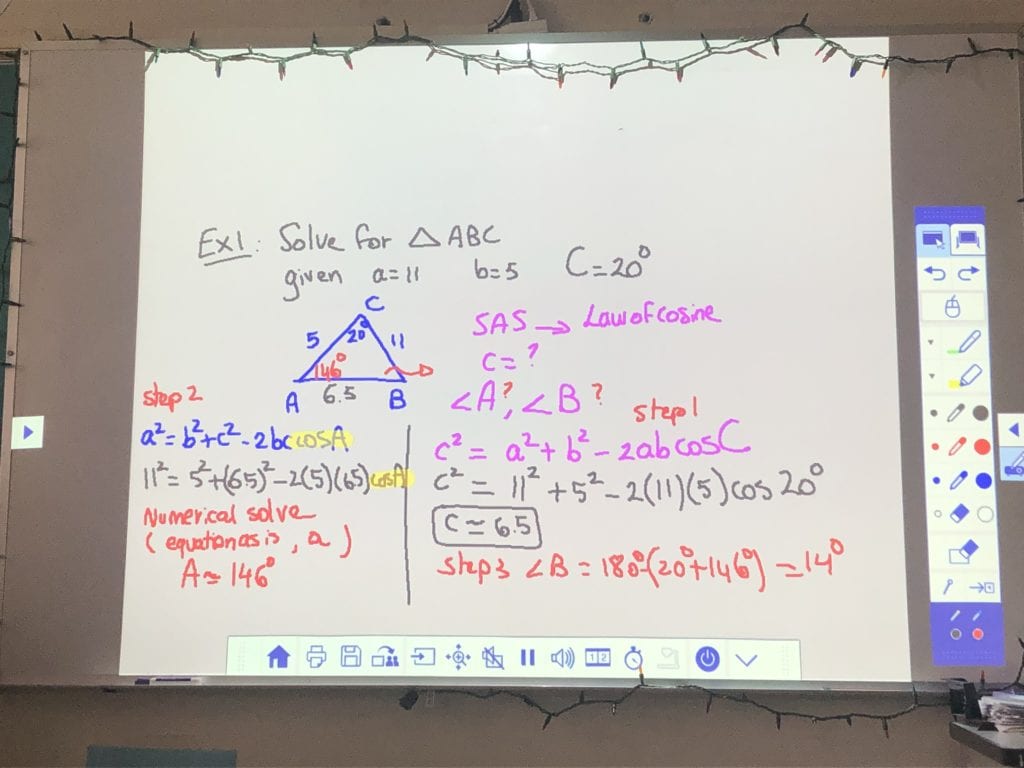 Ex1: Solve for △ABC
given a=11 b=5 C=20°
C
5 20° 11
146°
A 6.5 B
SAS → Law of cosine
c=?
∠A?, ∠B?
step 2
a²=b²+c²-2bc cosA
11²=5²+(6.5)²-2(5)(6.5)cosA
Numerical solve
(equation as is, a)
A≈146°
step 1
c² = a²+b²-2ab cosC
c² = 11²+5²-2(11)(5)cos 20°
c≈6.5
step 3 ∠B = 180°-(20°+146°) = 14°
1 2